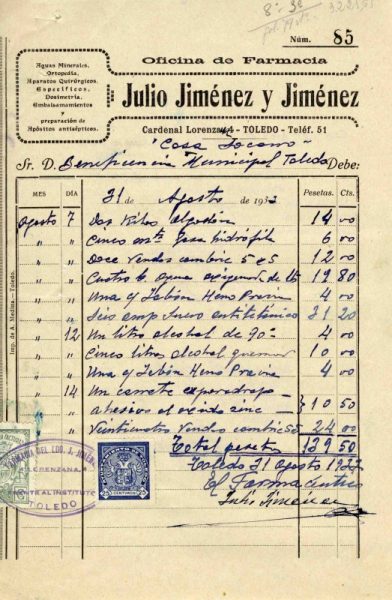 8-3º
Núm. 85
Aguas Minerales.
Ortopedia.
Aparatos Quirúrgicos.
Específicos.
Dosimetría.
Embalsamamientos
y
preparación de
Apósitos antisépticos.
Oficina de Farmacia
Julio Jiménez y Jiménez
Cardenal Lorenzana 4 - TOLEDO - Teléf. 51
"Casa Socorro"
Sr. D. Beneficencia Municipal Toledo Debe:
MES DÍA 31 de Agosto de 193 Pesetas. Cts.
Agosto 7 Dos Kilos algodón 14 00
" " Cinco mts Gasa hidrófila 6 00
" " Doce Vendas cambric 5 x 5 12 00
" " Cuatro b. agua oxigenada de 19 80
" " Una y Jabón Heno Pravia 4 00
" " Seis amp Suero antitetánico 31 20
" 12 Un litro alcohol de 90º 4 00
" " Cinco litros alcohol quemar 10 00
" " Una y Jabón Heno Pravia 4 00
" 14 Un carrete esparadrapo
" " 10 50
" " Veinticuatro Vendas cambric 5 24 00
Total pesetas 139 50
Toledo 31 Agosto 193
El Farmacéutico
Julio Jiménez
Imp. de A. Medina - Toledo.
FARMACIA DEL LDO. J. JIMENEZ
LORENZANA, 4
CENTRAL INSTITUTO
TOLEDO
25 CENTIMOS 25